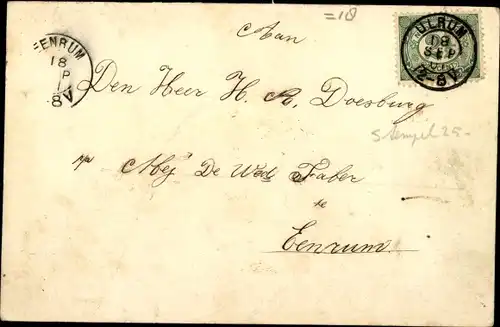 =18
Aan
EENRUM
18
P
8 V
ULRUM
18
SEP
12-8V
Den Heer H. A. Doesburg
Stempel 25-
p/a Mej De Wed Faber
te
Eenrum.